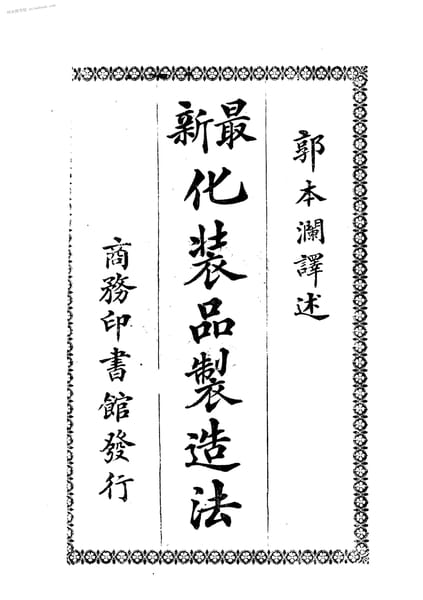 郭本瀾譯述
最新化裝品製造法
商務印書館發行